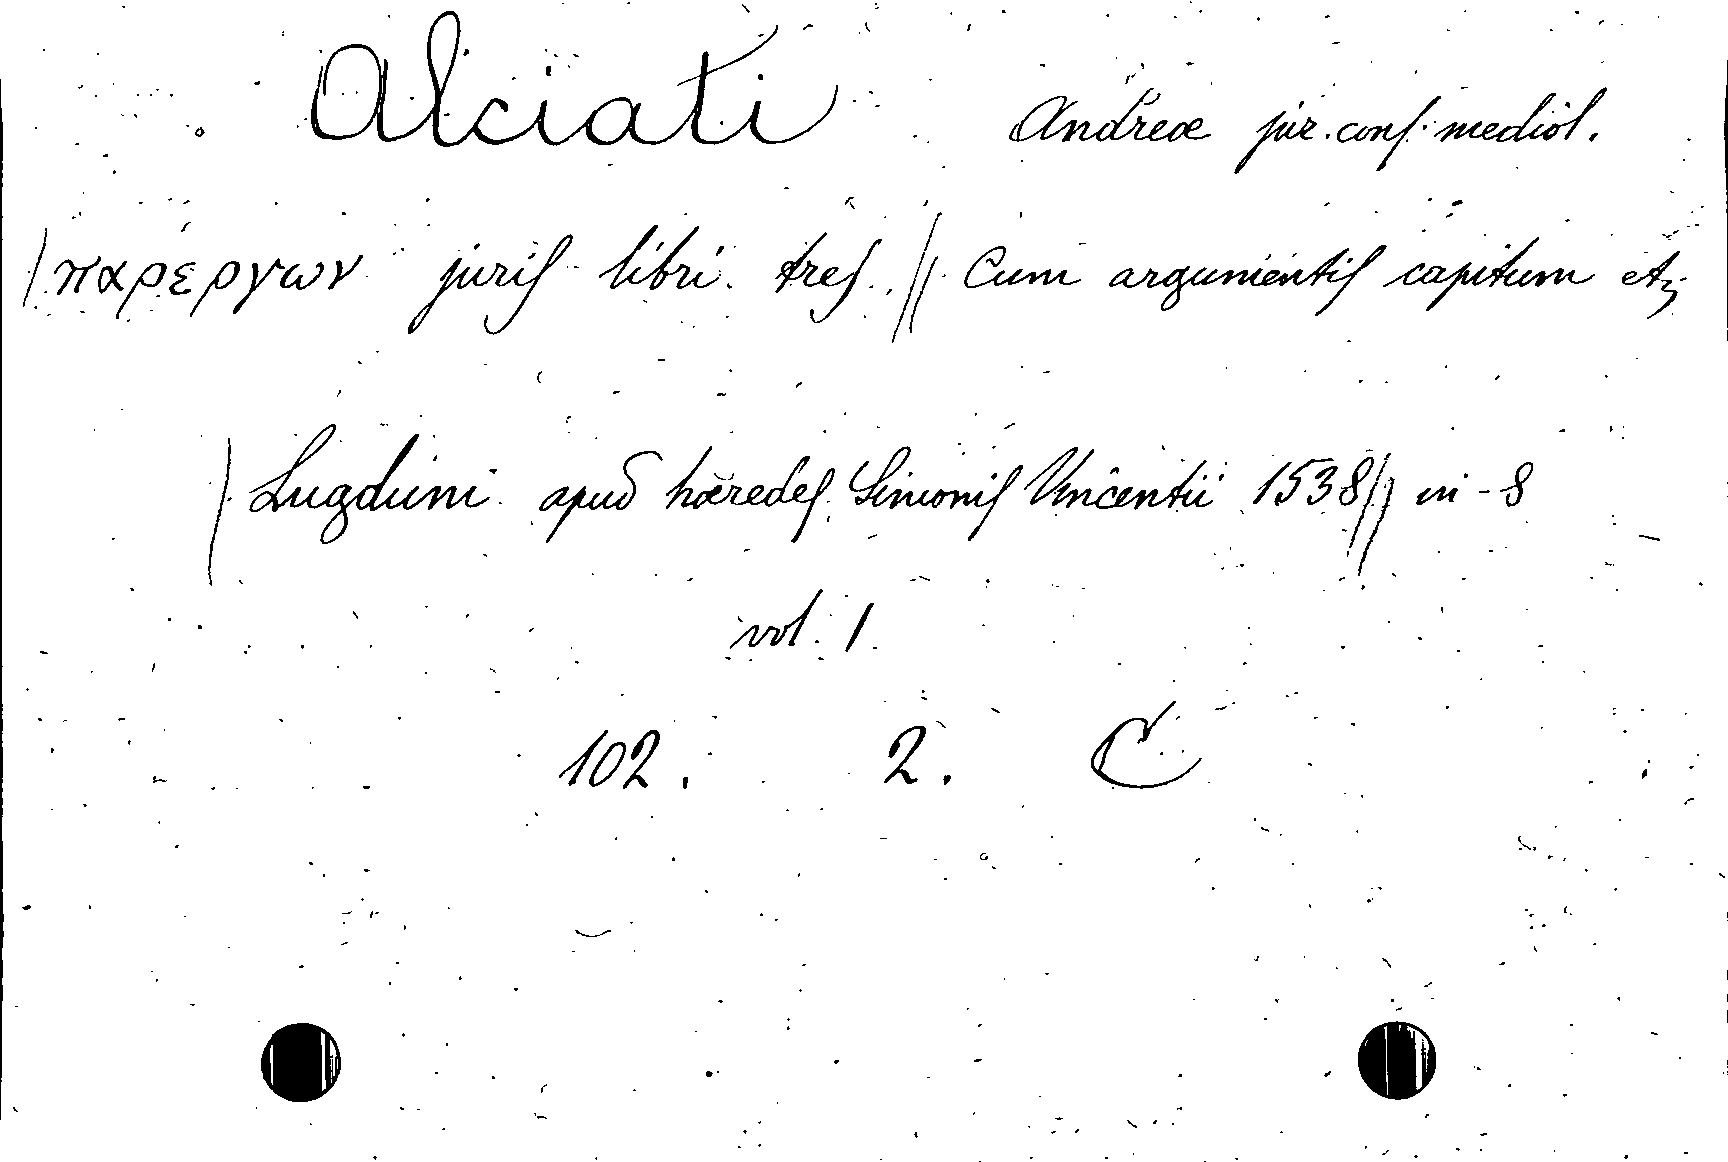 Alciati Andreæ jur. conſ. mediol.
/ παρέργων juriſ libri treſ. // Cum argumentiſ capitum etz
/ Lugduni apud hæredeſ Simoniſ Vincentii 1538 // in-8
vol. 1
102. 2. C